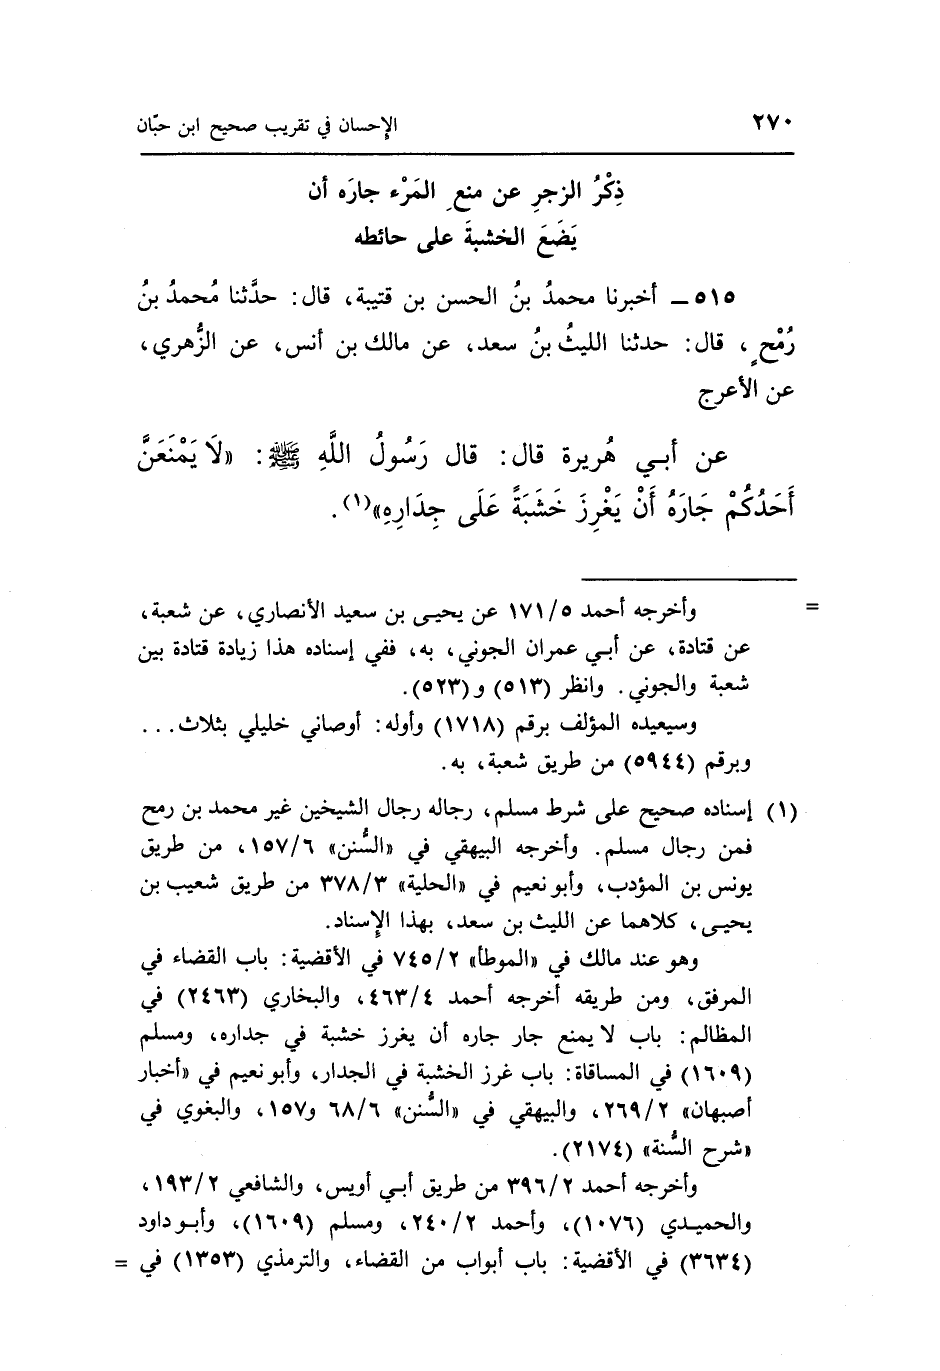 ٢٧٠ الإحسان في تقريب صحيح ابن حبّان
ذِكْرُ الزجرِ عن منعِ المَرْء جارَه أن
يَضَعَ الخشبةَ على حائطه
٥١٥ ـ أخبرنا محمدُ بنُ الحسن بن قتيبة، قال: حدَّثنا مُحمدُ بنُ
رُمْحٍ، قال: حدثنا الليثُ بنُ سعد، عن مالك بن أنس، عن الزُّهري،
عن الأعرج
عن أبي هُريرة قال: قال رَسُولُ اللَّهِ ﷺ: «لَا يَمْنَعَنَّ
أَحَدُكُمْ جَارَهُ أَنْ يَغْرِزَ خَشَبَةً عَلَى جِدَارِهِ»(١).
= وأخرجه أحمد ١٧١/٥ عن يحيى بن سعيد الأنصاري، عن شعبة،
عن قتادة، عن أبي عمران الجوني، به، ففي إسناده هذا زيادة قتادة بين
شعبة والجوني. وانظر (٥١٣) و(٥٢٣).
وسيعيده المؤلف برقم (١٧١٨) وأوله: أوصاني خليلي بثلاث...
وبرقم (٥٩٤٤) من طريق شعبة، به.
(١) إسناده صحيح على شرط مسلم، رجاله رجال الشيخين غير محمد بن رمح
فمن رجال مسلم. وأخرجه البيهقي في «السُّنن» ١٥٧/٦، من طريق
يونس بن المؤدب، وأبو نعيم في «الحلية» ٣٧٨/٣ من طريق شعيب بن
يحيى، كلاهما عن الليث بن سعد، بهذا الإسناد.
وهو عند مالك في «الموطأ» ٧٤٥/٢ في الأقضية: باب القضاء في
المرفق، ومن طريقه أخرجه أحمد ٤٦٣/٤، والبخاري (٢٤٦٣) في
المظالم: باب لا يمنع جار جاره أن يغرز خشبة في جداره، ومسلم
(١٦٠٩) في المساقاة: باب غرز الخشبة في الجدار، وأبو نعيم في «أخبار
أصبهان» ٢٦٩/٢، والبيهقي في «السُّنن» ٦٨/٦ و١٥٧، والبغوي في
«شرح السُّنة» (٢١٧٤).
وأخرجه أحمد ٣٩٦/٢ من طريق أبي أويس، والشافعي ١٩٣/٢،
والحميدي (١٠٧٦)، وأحمد ٢٤٠/٢، ومسلم (١٦٠٩)، وأبو داود
(٣٦٣٤) في الأقضية: باب أبواب من القضاء، والترمذي (١٣٥٣) في =